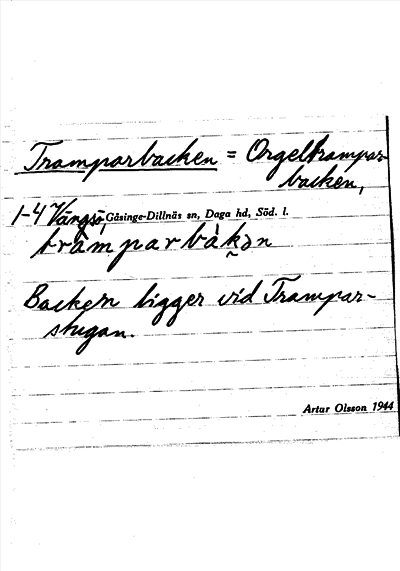 Tramparbacken = Orgeltrampar-
backen,
1-4 Vängsö, Gåsinge-Dillnäs sn, Daga hd, Söd. l.
tràmparbàkən
Backen ligger vid Trampar-
stugan.
Artur Olsson 1944